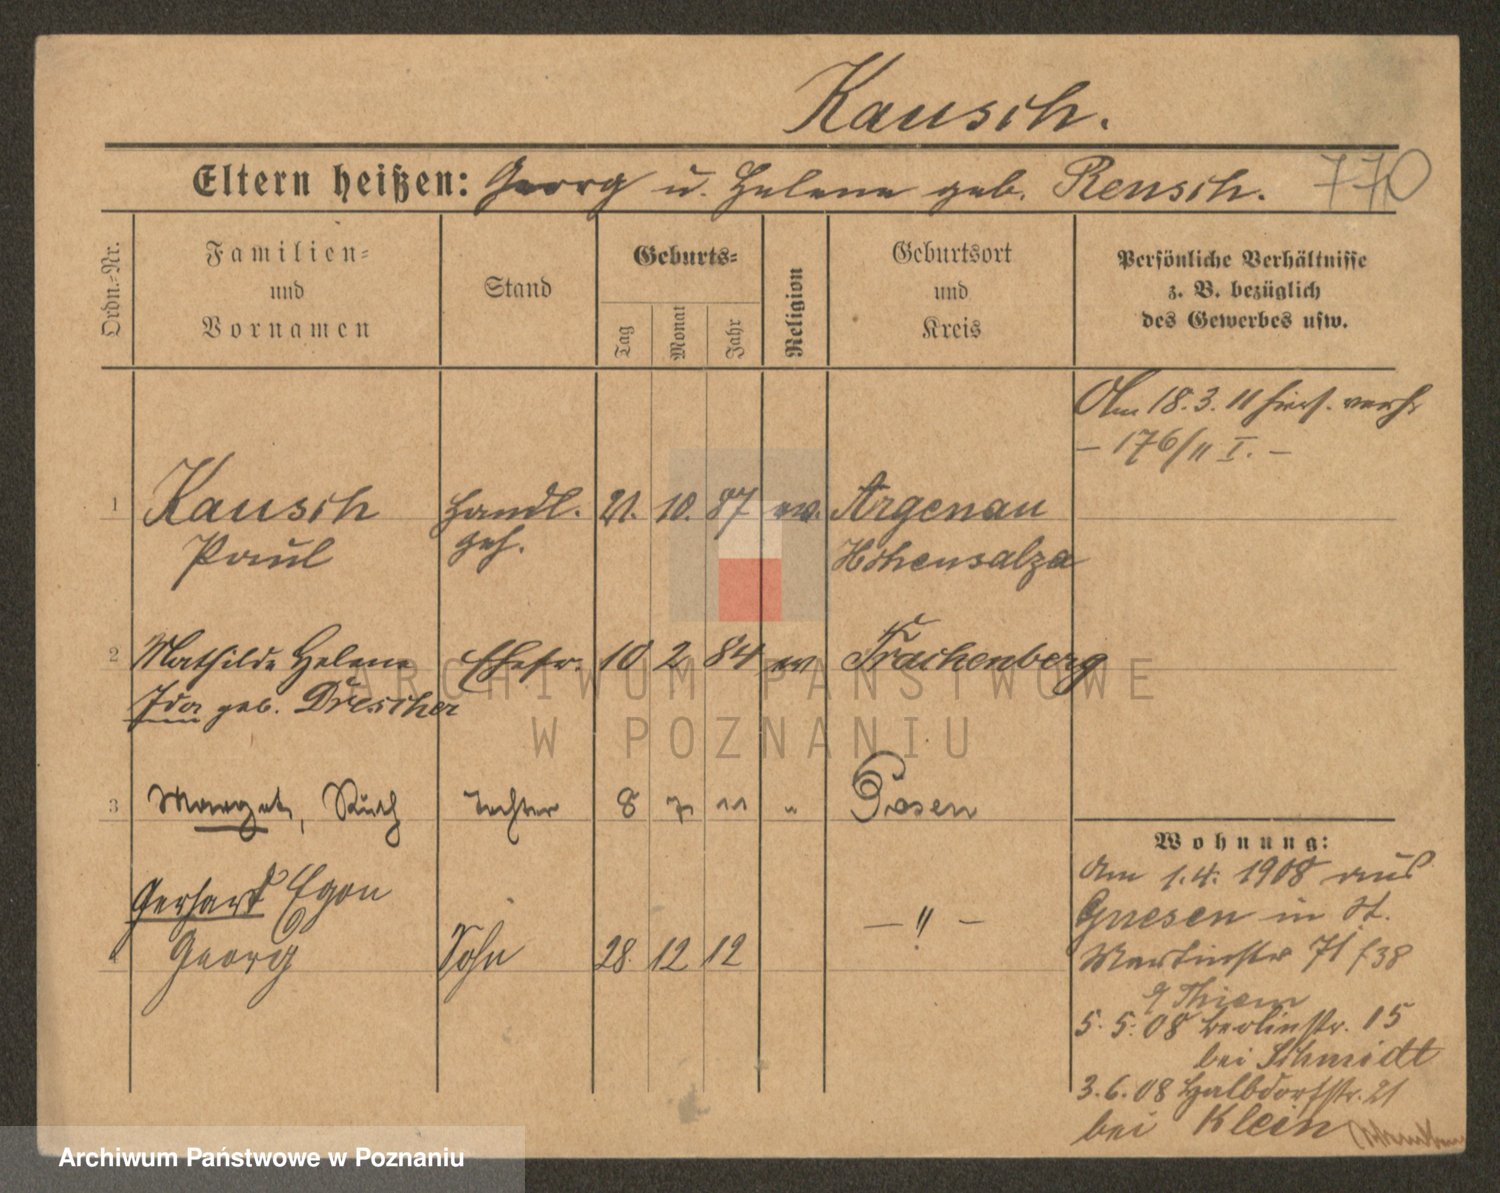 Kausch.
Eltern heißen: Georg u. Helene geb. Rensch. 770
Ordn.-Nr.
Familien- und Vornamen
Stand
Geburts-
Tag
Monat
Jahr
Religion
Geburtsort und Kreis
Persönliche Verhältnisse
z. B. bezüglich
des Gewerbes usw.
Am 18.3.11 hies. verh.
– 176/11 I. –
1 Kausch Handl. 21. 10. 87 ev. Argenau
Paul geh. Hohensalza
2 Mathilde Helene Ehefr. 10 2 84 ev Trachenberg
Ida geb. Drescher
3 Margot, Ruth Tochter 8 7 11 " Posen
Gerhard Egon – " –
4 Georg Sohn 28 12 12
Wohnung:
Am 1.4. 1908 aus
Gnesen in St.
Martinstr 71 f 38
Thiem
5.5.08 Berlinstr. 15
bei Schmidt
3.6.08 Halbdorfstr. 21
bei Klein
ARCHIWUM PAŃSTWOWE
W POZNANIU
Archiwum Państwowe w Poznaniu